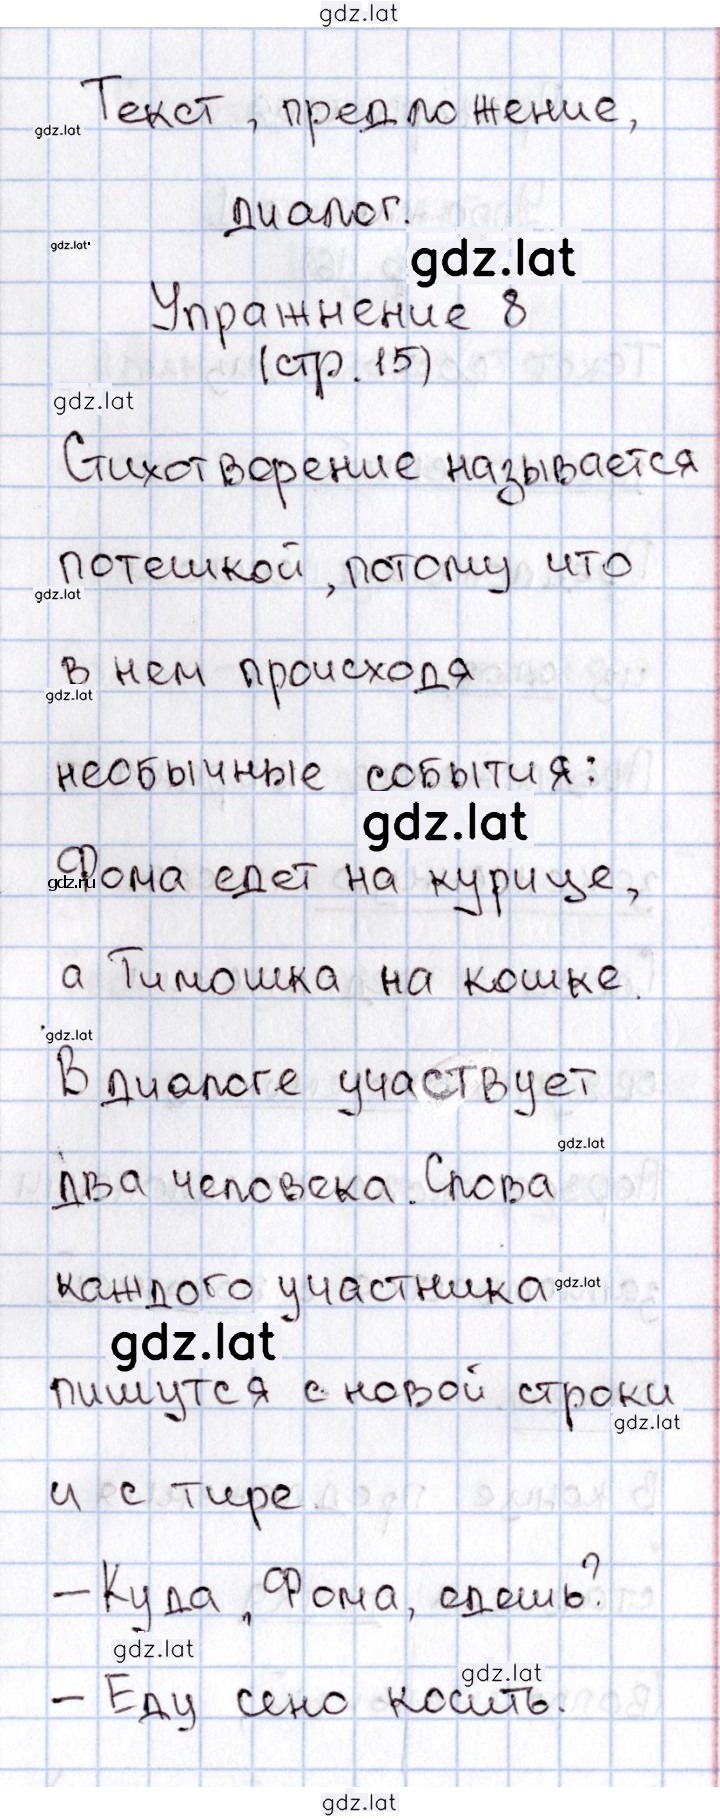 gdz.lat
Текст, предложение,
gdz.lat
диалог.
gdz.lat
gdz.lat
Упражнение 8
(стр. 15)
gdz.lat
Стихотворение называется
потешкой, потому что
gdz.lat
в нем происходя
gdz.lat
необычные события:
gdz.lat
Фома едет на курице,
gdz.ru
а Тимошка на кошке.
gdz.lat
В диалоге участвует
gdz.lat
два человека. Слова
каждого участника
gdz.lat
gdz.lat
пишутся с новой строки
gdz.lat
и с тире.
– Куда, Фома, едешь?
gdz.lat
gdz.lat
– Еду сено косить.
gdz.lat